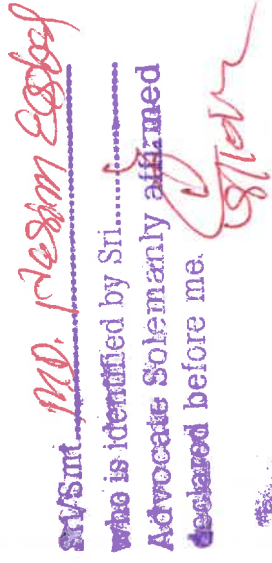 Sri/Smt..........Md.
who is identified by Sri..........
Advocate Solemanly affirmed
declared before me.